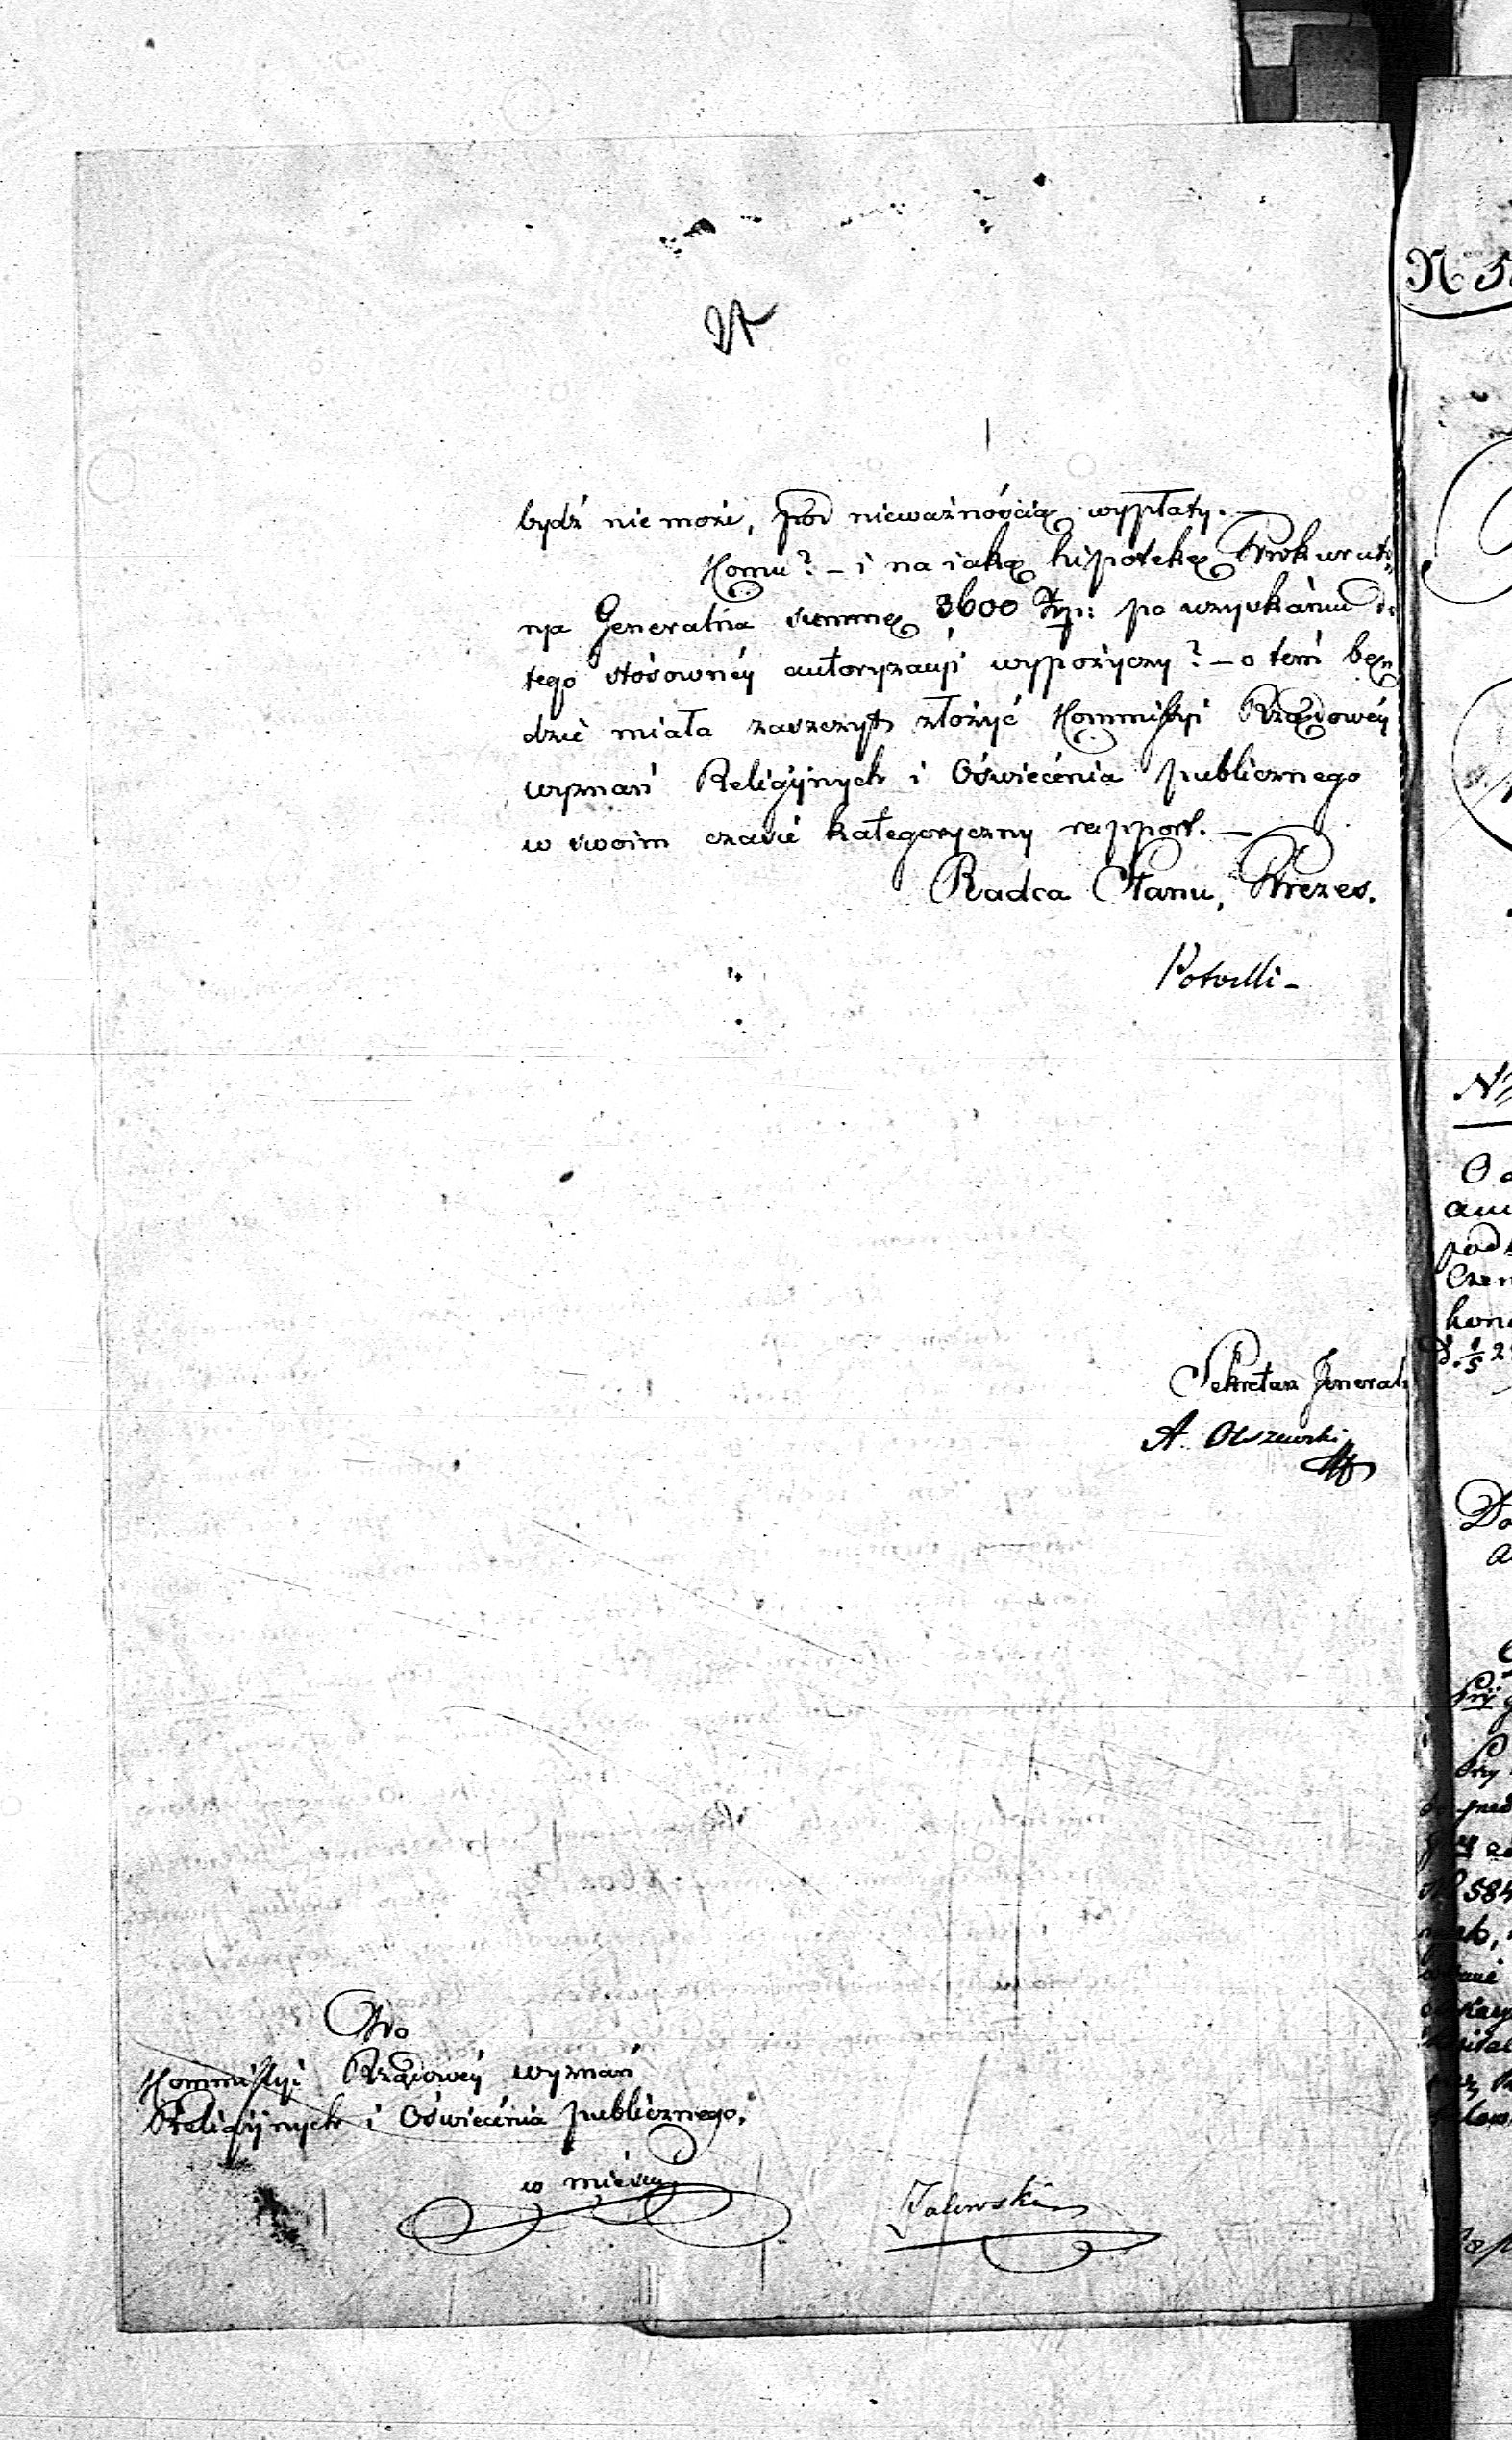 bydź nie może, pod nieważnością wypłaty. —
Komu? — i na iaką hipotekę Prokurato„
rya Generalna summę 3600 Złp: po uzyskaniu do
tego stósownéy autoryzacyi wypożyczy? — o tem bę„
dzie miała zaszczyt złożyć Kommissyi Rządowéy
wyznań Religiynych i Oświecenia publicznego
w swoim czasie kategoryczny rapport. —
Radca Stanu, Prezes.
Sekretarz Jeneralny
A. Olszewski
Do
Kommissyi Rządowéy wyznań
Religiynych i Oświecenia publicznego.
w mieyscu
Zalewski